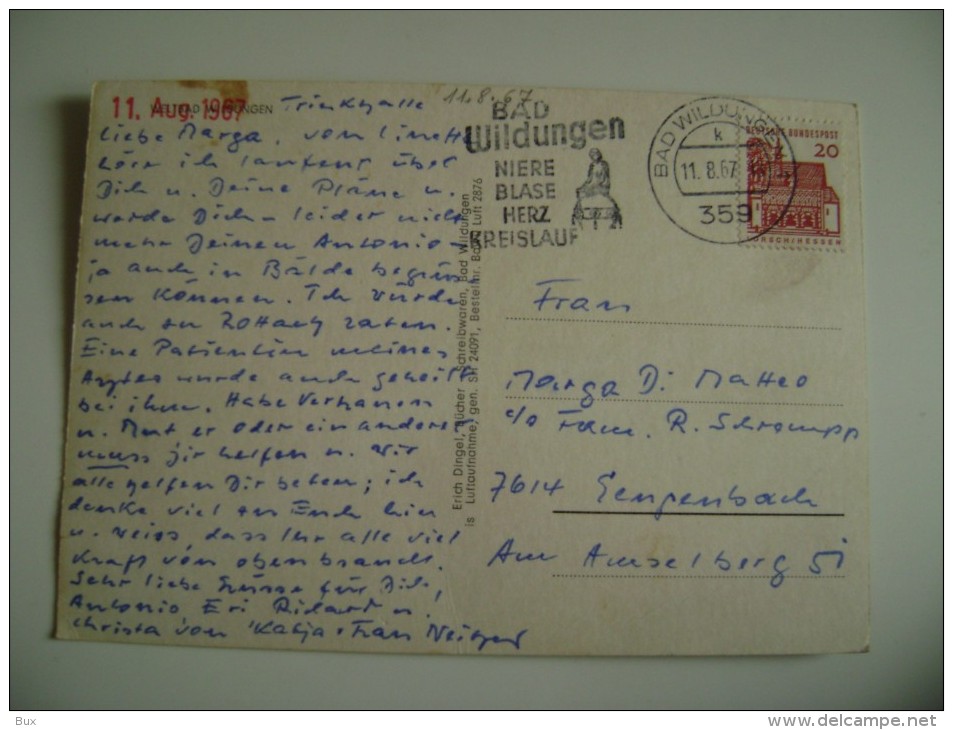 11. Aug. 1967
WELTBAD WILDUNGEN Trinkhalle
11.8.67
Liebe Marga, von Linette
höre ich laufend über
Dich u. Deine Pläne u.
werde Dich – leider nicht
mehr Deinen Antonio –
ja auch in Bälde begrüs-
sen können. Ich würde
auch zu raten.
Eine Patientin meines
Arztes wurde auch geheilt
bei ihm. Habe Vertrauen
u. Mut er oder ein anderer
muss Dir helfen u. Wir
alle helfen Dir beten; ich
denke viel an Euch hier
u. weiss, dass Ihr alle viel
Kraft von oben braucht.
Sehr liebe Grüsse für Dich,
Antonio Eri u.
Christa von Katja + Frau
Erich Dingel, Bücher, Schreibwaren, Bad Wildungen
is Luftaufnahme, gen. SH 24091, Bestellnr. Luft 2876
BAD
Wildungen
NIERE
BLASE
HERZ
KREISLAUF
BAD WILDUNGEN
k
11.8.67
359
DEUTSCHE BUNDESPOST
20
LORSCH/HESSEN
Frau
Marga Di Matteo
c/o Fam. R. Schrempp
7614 Gengenbach
Am Amselberg 51
Bux
www.delcampe.net